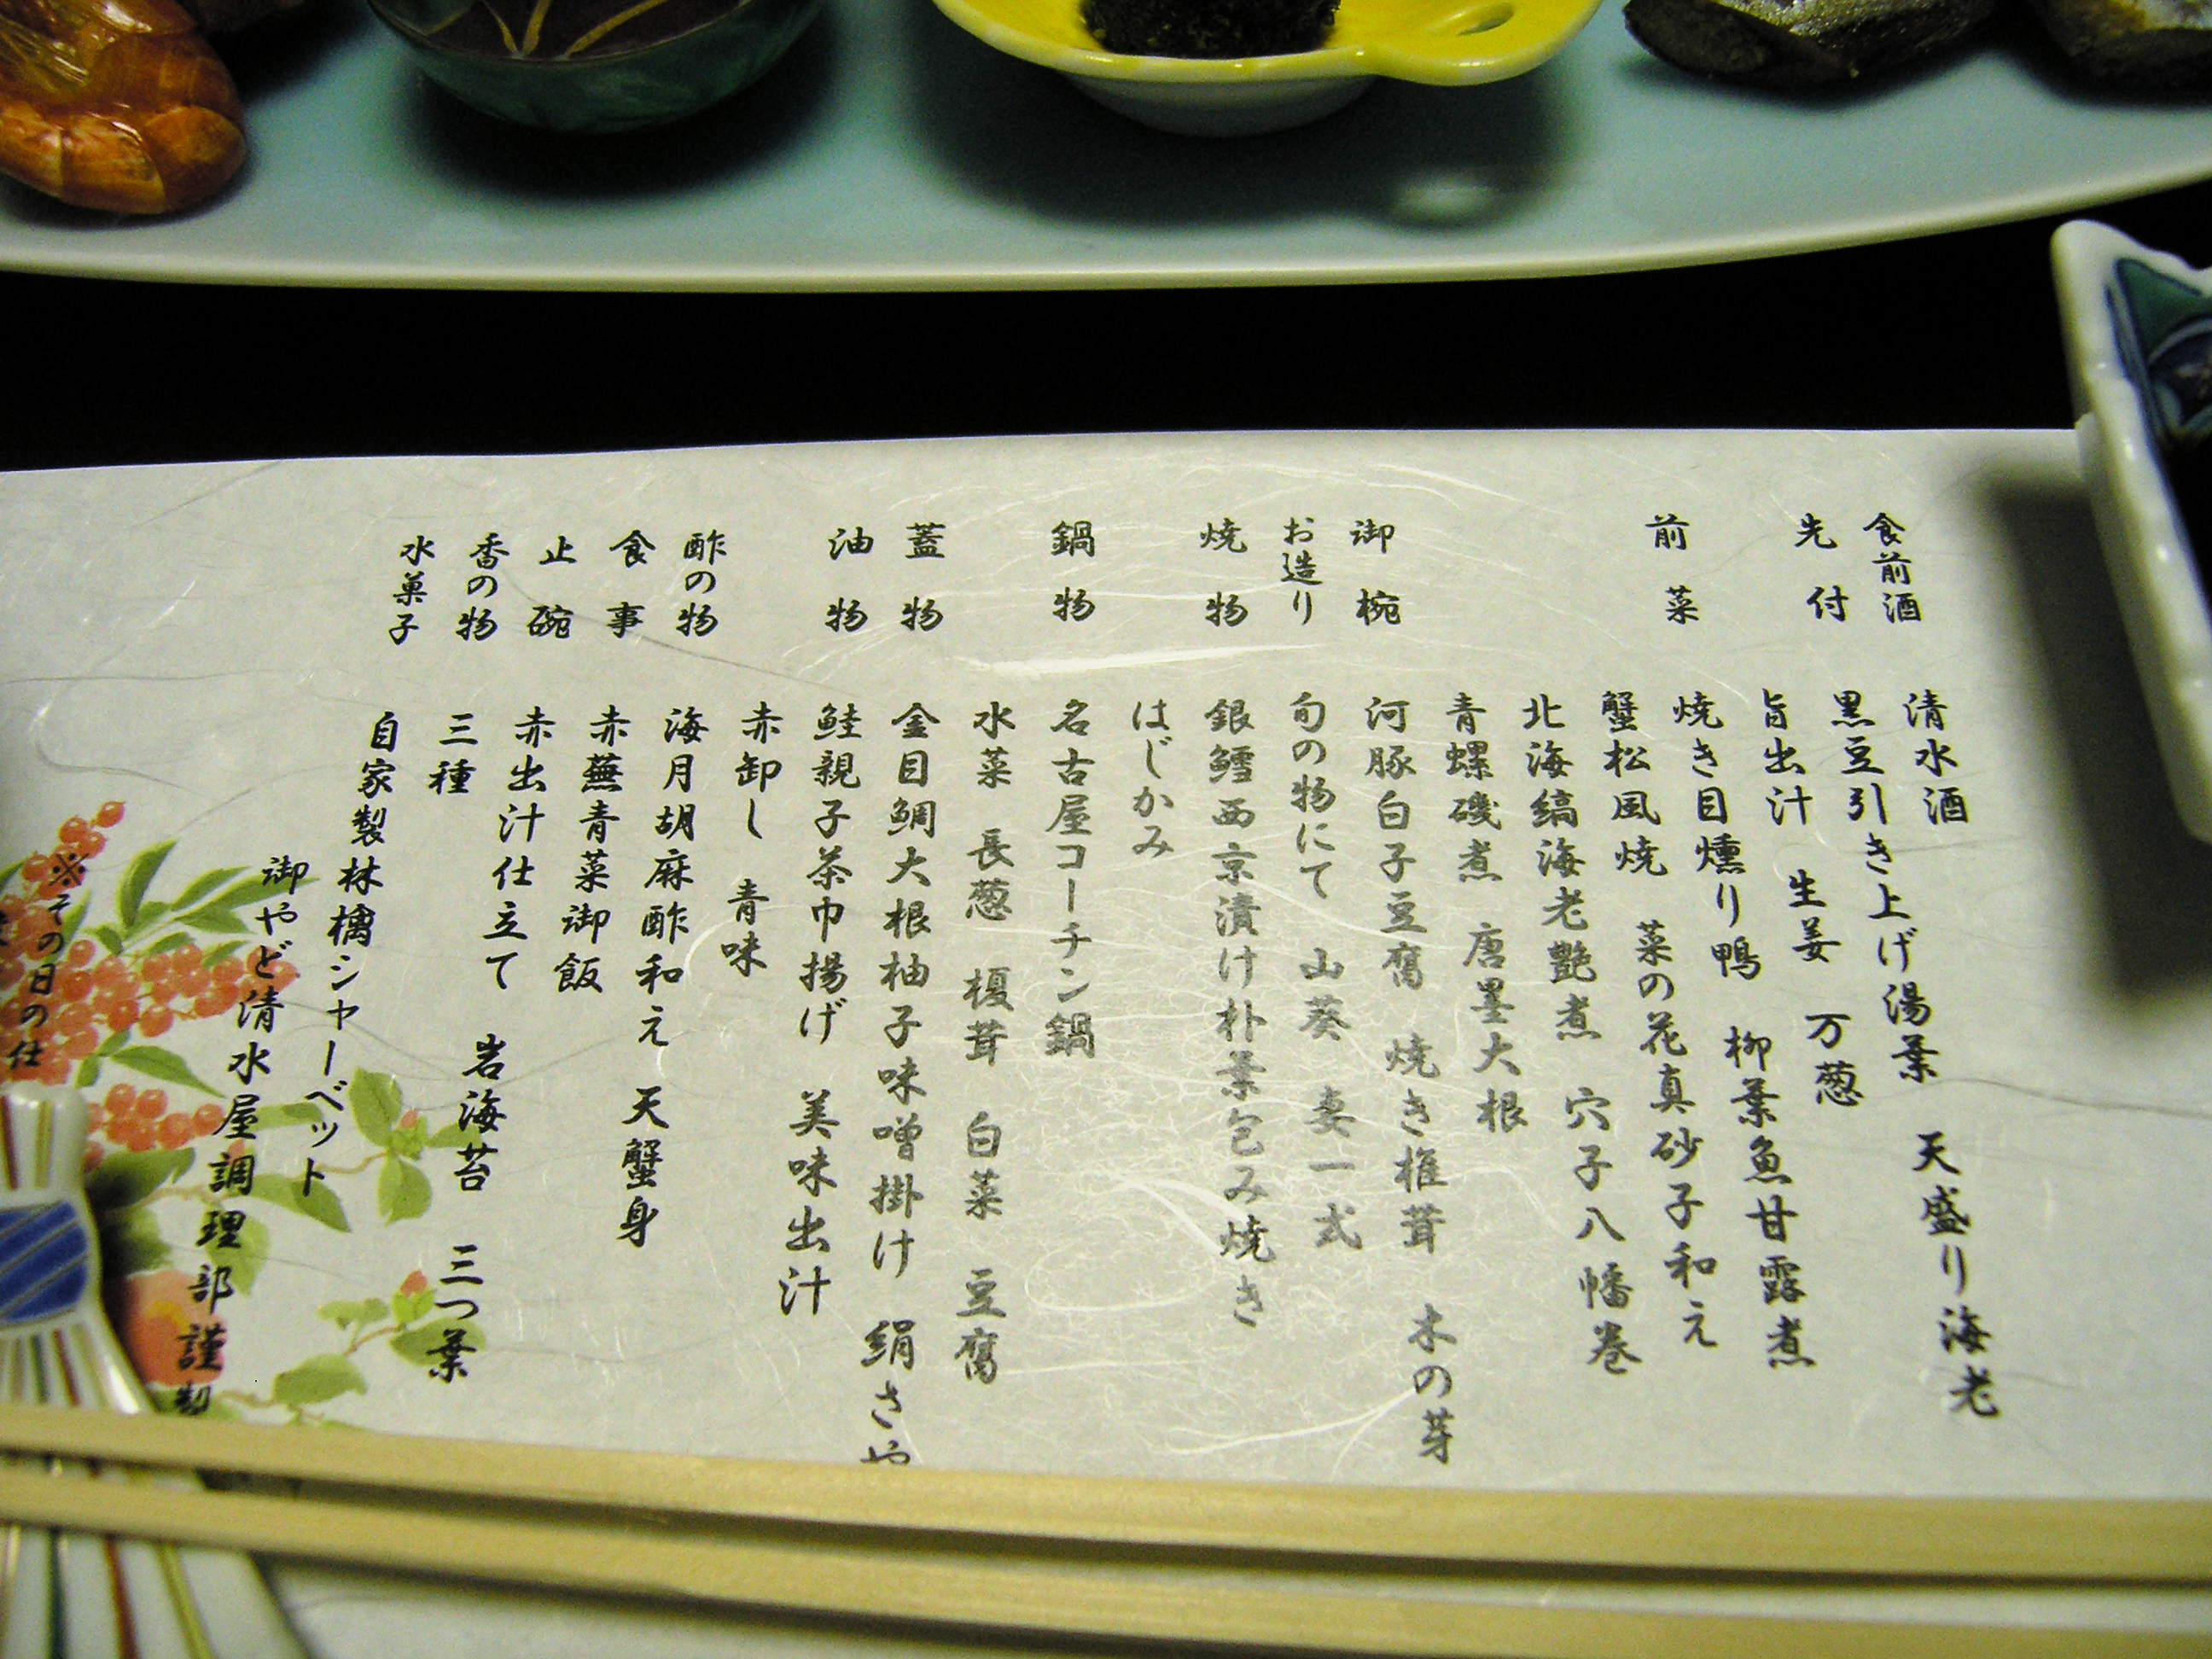 食前酒　清水酒
先付　黒豆引き上げ湯葉　天盛り海老
旨出汁　生姜　万葱
前菜　焼き目燻り鴨　柳葉魚甘露煮
蟹松風焼　菜の花真砂子和え
北海縞海老艶煮　穴子八幡巻
青螺磯煮　唐墨大根
御椀　河豚白子豆腐　焼き椎茸　木の芽
お造り　旬の物にて　山葵　妻一式
焼物　銀鱈西京漬け朴葉包み焼き
はじかみ
鍋物　名古屋コーチン鍋
水菜　長葱　榎茸　白菜　豆腐
蓋物　金目鯛大根柚子味噌掛け　絹さや
油物　鮭親子茶巾揚げ　美味出汁
赤卸し　青味
酢の物　海月胡麻酢和え　天蟹身
食事　赤蕪青菜御飯
止碗　赤出汁仕立て　岩海苔　三つ葉
香の物　三種
水菓子　自家製林檎シャーベット
御やど清水屋調理部謹製
※その日の仕